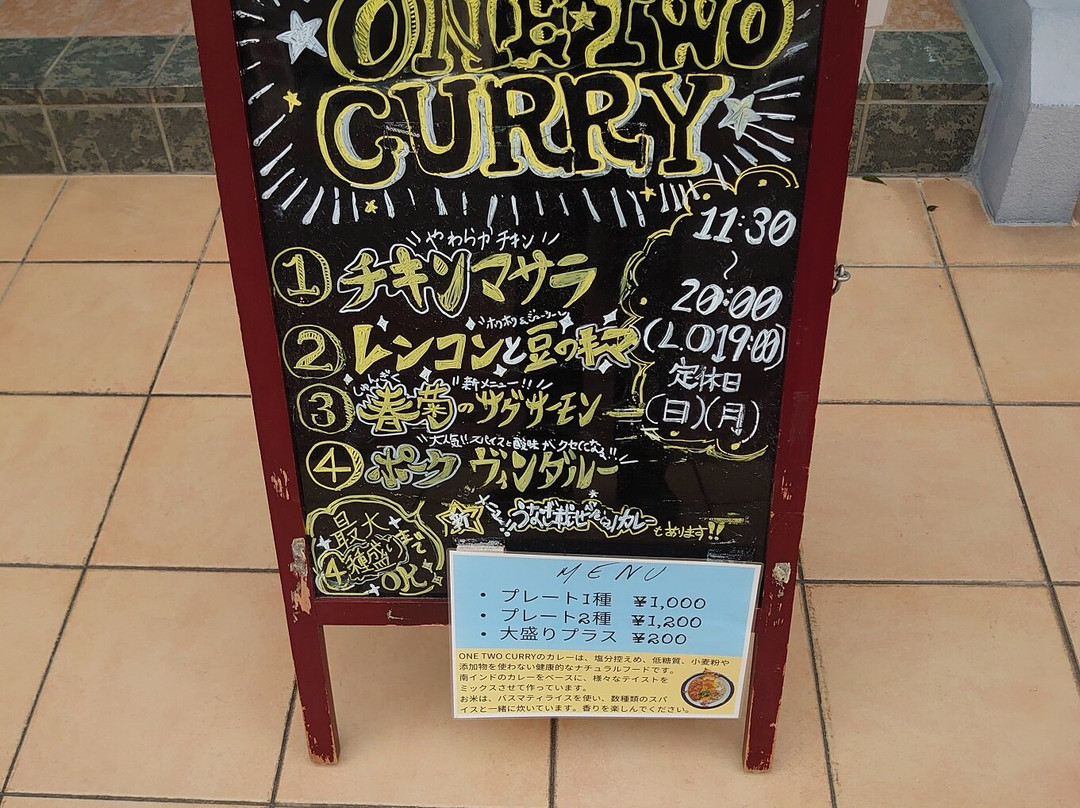 ONE★TWO
CURRY
やわらかチキン
① チキンマサラ
ホクホク&ジューシー
② レンコンと豆のキーマ
しゅんさい
新メニュー!!
③ 春菜のサグサーモン
大人気!! スパイスと酸味がクセになる!!
④ ポーク ヴィンダルー
11:30
~
20:00
(L.O19:00)
定休日
(日)(月)
最大
4種盛りまで
OK
新
カレー
もあります!!
MENU
• プレート1種 ¥1,000
• プレート2種 ¥1,200
• 大盛りプラス ¥200
ONE TWO CURRYのカレーは、塩分控えめ、低糖質、小麦粉や
添加物を使わない健康的なナチュラルフードです。
南インドのカレーをベースに、様々なテイストを
ミックスさせて作っています。
お米は、バスマティライスを使い、数種類のスパ
イスと一緒に炊いています。香りを楽しんでください。